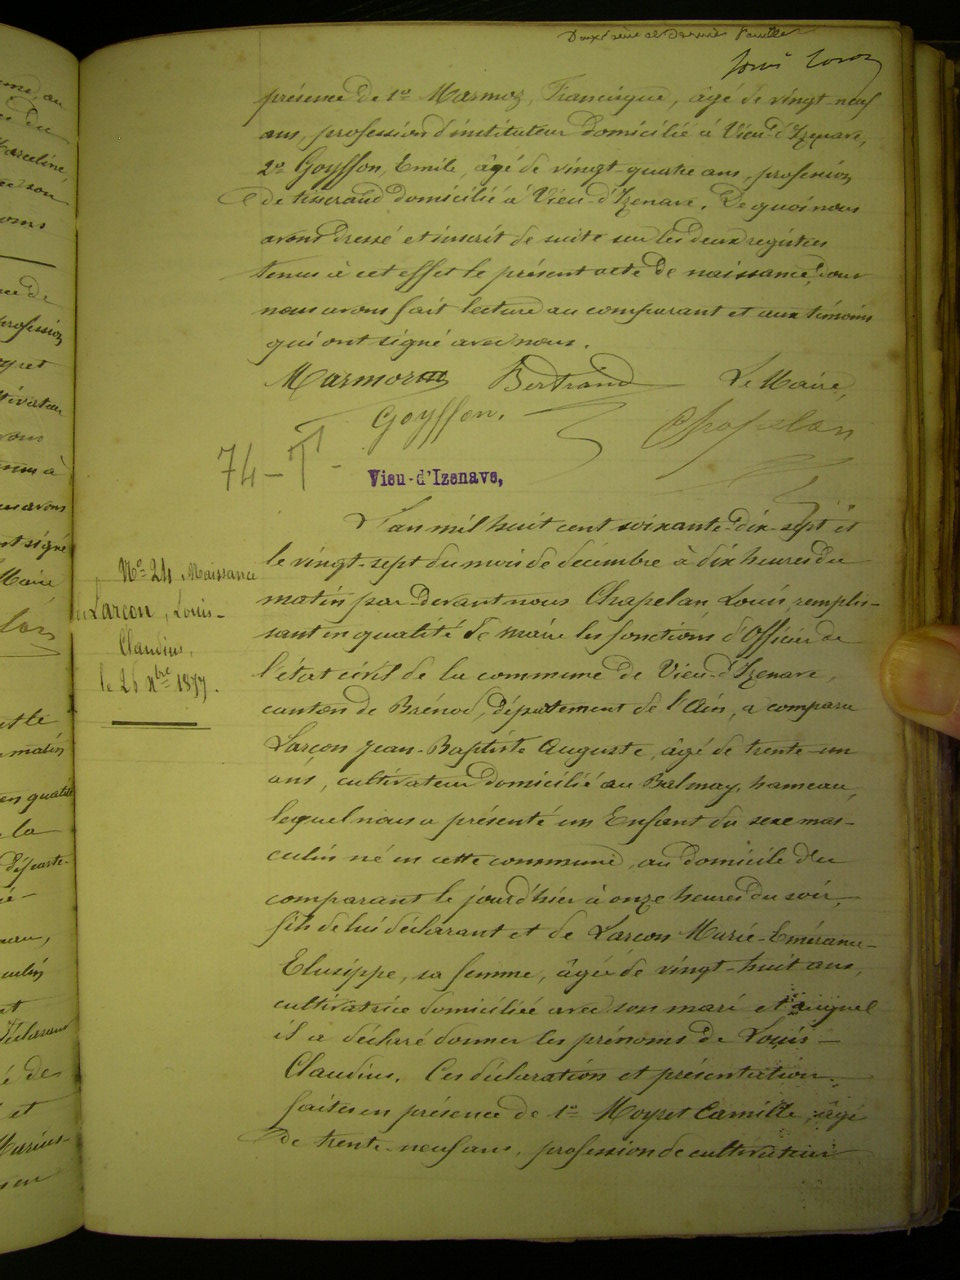 Deuxième et dernier feuillet
présence de 1º Marmoz, Francisque, âgé de vingt-neuf
ans, profession d'instituteur domicilié à Vieu-d'Izenave,
2º Goyffon, Emile, âgé de vingt-quatre ans, profession
de tisserand domicilié à Vieu-d'Izenave. De quoi nous
avons dressé et inscrit de suite sur les deux registres
tenus à cet effet le présent acte de naissance, dont
nous avons fait lecture au comparant et aux témoins
qui ont signé avec nous.
Marmoz Bertrand Le Maire,
Goyffon. Chapelan
74-T-
Vieu-d'Izenave,
L'an mil huit cent soixante-dix-sept et
le vingt-sept du mois de décembre à dix heures du
matin par-devant nous Chapelan, Louis, remplis-
sant en qualité de maire les fonctions d'Officier de
l'état civil de la commune de Vieu-d'Izenave,
canton de Brénod, département de l'Ain, a comparu
Larçon Jean-Baptiste Auguste, âgé de trente-un
ans, cultivateur domicilié au Balmay, hameau,
lequel nous a présenté un Enfant du sexe mas-
culin né en cette commune, au domicile du
comparant le jour d'hier à onze heures du soir,
fils de lui déclarant et de Larçon Marie-Eméranne-
Elusippe, sa femme, âgée de vingt-huit ans,
cultivatrice domiciliée avec son mari et auquel
il a déclaré donner les prénoms de Louis-
Claudius. Ces déclaration et présentation
faites en présence de 1º Moyret Camille, âgé
de trente-neuf ans, profession de cultivateur
Nº 24 Naissance
de Larçon, Louis-
Claudius,
le 26 Xbre 1877.